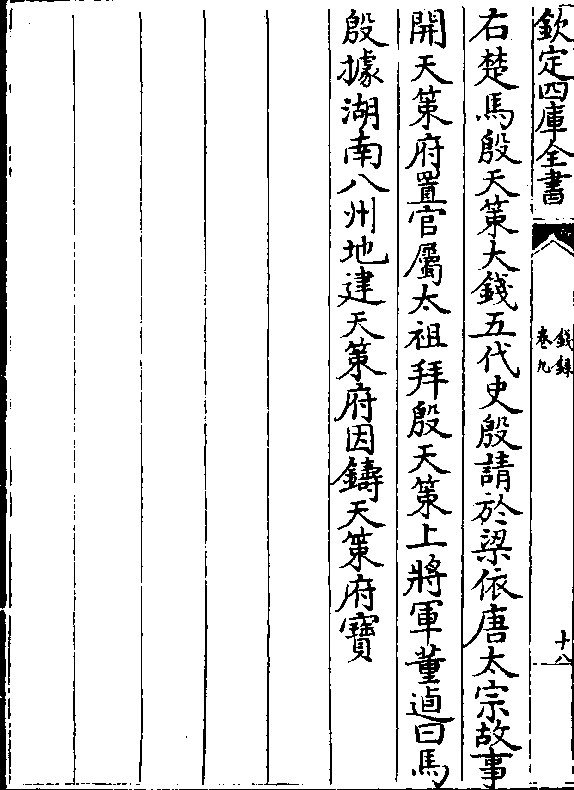 欽定四庫全書
錢録
卷九
十八
右楚馬殷天策大錢五代史殷請於梁依唐太宗故事
開天策府置官屬太祖拜殷天策上將軍董逌曰馬
殷據湖南八州地建天策府因鑄天策府寶